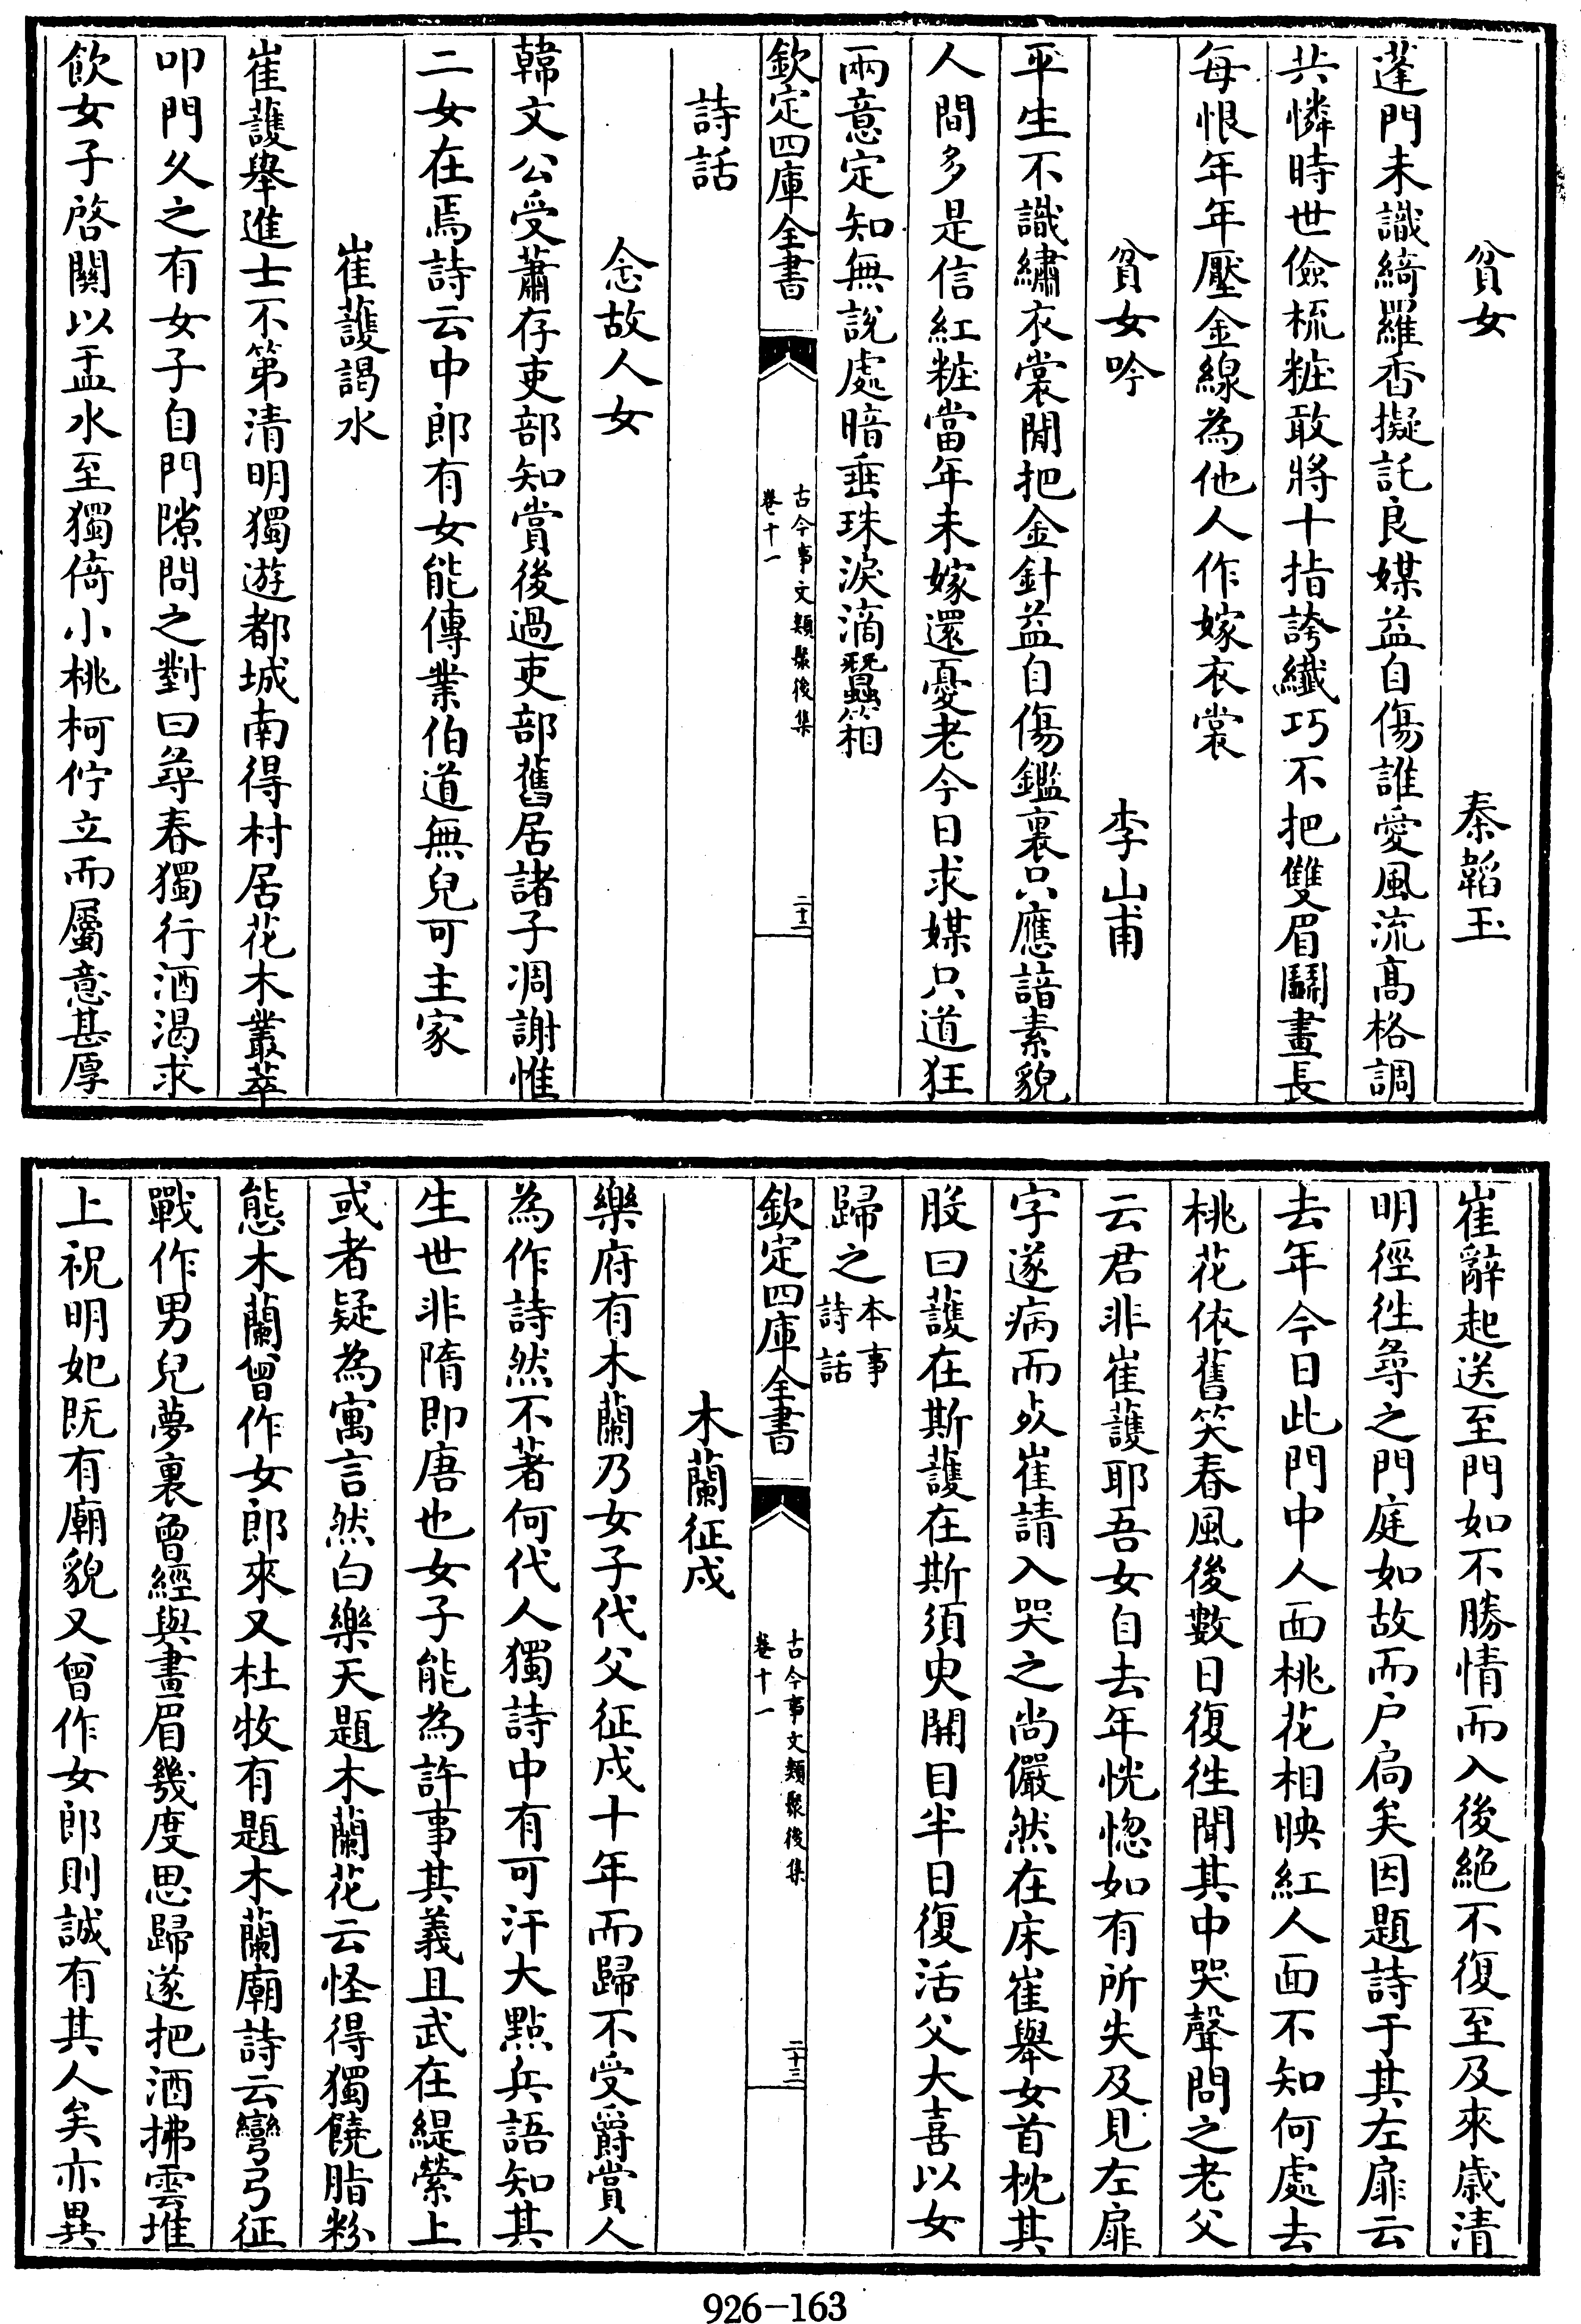 貧女 秦韜玉
蓬門未識綺羅香擬託良媒益自傷誰愛風流髙格調
共憐時世儉梳粧敢將十指誇纎巧不把雙眉鬭畫長
每恨年年壓金線為他人作嫁衣裳
貧女吟 李山甫
平生不識繡衣裳閒把金針益自傷鑑裏只應諳素貌
人間多是信紅粧當年未嫁還憂老今日求媒只道狂
兩意定知無說處暗垂珠淚滴蠶箱
欽定四庫全書
古今事文類聚後集
卷十一
二十二
詩話
念故人女
韓文公受蕭存吏部知賞後過吏部舊居諸子凋謝惟
二女在焉詩云中郎有女能傳業伯道無兒可主家
崔護謁水
崔護舉進士不第清明獨遊都城南得村居花木叢萃
叩門久之有女子自門隙問之對曰尋春獨行酒渴求
飲女子啓關以盂水至獨倚小桃柯佇立而屬意甚厚
崔辭起送至門如不勝情而入後絶不復至及來歲清
明徑徃尋之門庭如故而戶扃矣因題詩于其左扉云
去年今日此門中人面桃花相映紅人面不知何處去
桃花依舊笑春風後數日復徃聞其中哭聲問之老父
云君非崔護耶吾女自去年恍惚如有所失及見左扉
字遂病而歿崔請入哭之尚儼然在床崔舉女首枕其
股曰護在斯護在斯須臾開目半日復活父大喜以女
歸之本事
詩話
欽定四庫全書
古今事文類聚後集
卷十一
二十三
木蘭征戍
樂府有木蘭乃女子代父征戍十年而歸不受爵賞人
為作詩然不著何代人獨詩中有可汗大點兵語知其
生世非隋即唐也女子能為許事其義且武在緹縈上
或者疑為寓言然白樂天題木蘭花云怪得獨饒脂粉
態木蘭曾作女郎來又杜牧有題木蘭廟詩云彎弓征
戰作男兒夢裏曾經與畫眉幾度思歸遂把酒拂雲堆
上祝明妃既有廟貌又曾作女郎則誠有其人矣亦異
926-163